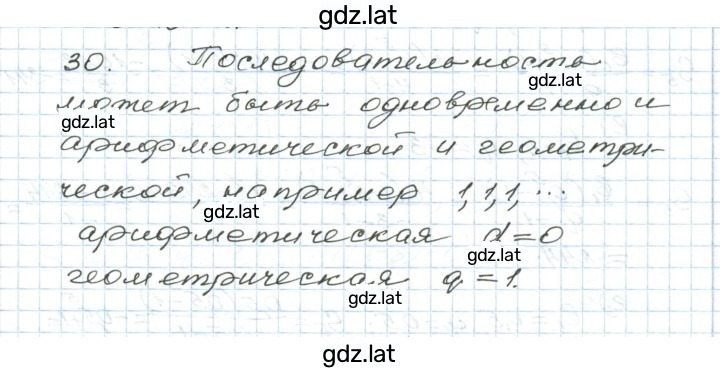 gdz.lat
30. Последовательность
gdz.lat
может быть одновременно и
gdz.lat
арифметической и геометри-
ческой, например 1, 1, 1, ...
gdz.lat
арифметическая d=0
gdz.lat
геометрическая q=1.
gdz.lat
gdz.lat